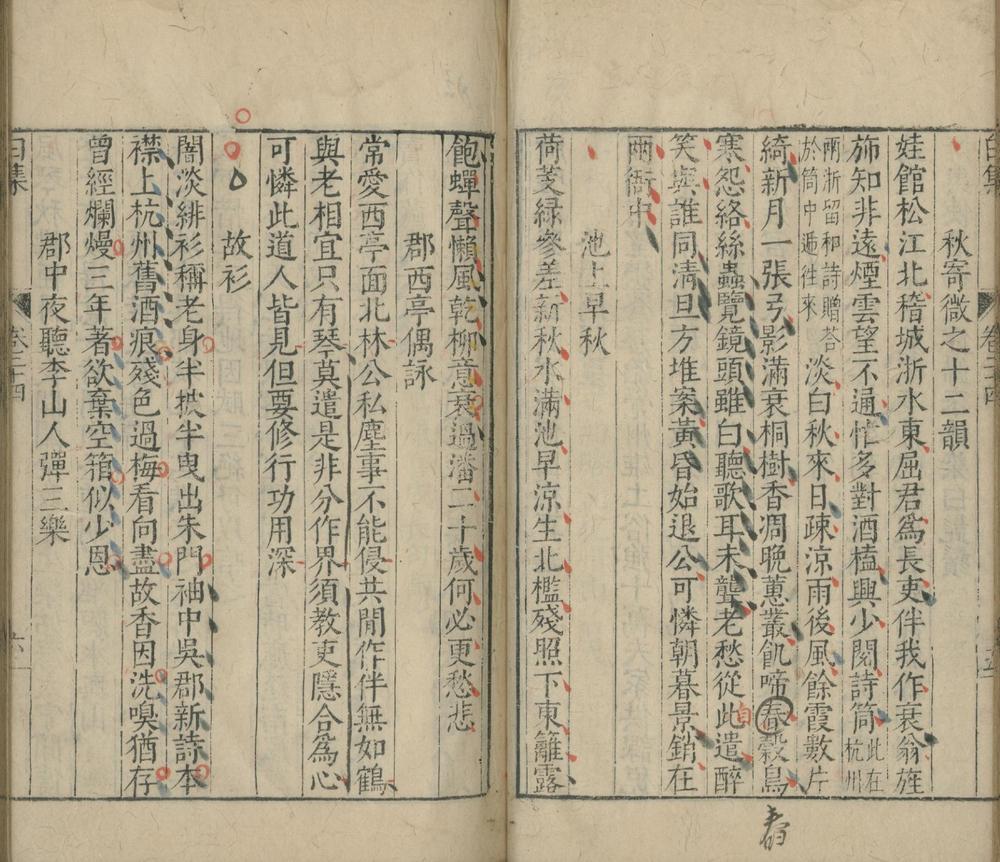 秋寄微之十二韻
娃館松江北稽城浙水東屈君爲長吏伴我作衰翁旌
斾知非遠煙雲望不通忙多對酒榼興少閱詩筒此在杭州
兩浙留和詩贈荅於筒中遞往來淡白秋來日疎涼雨後風餘霞數片
綺新月一張弓影滿衰桐樹香凋晩蕙叢飢啼春穀鳥
寒怨絡絲蟲覽鏡頭雖白聽歌耳未聾老愁從此遣醉
笑與誰同清旦方堆案黃昏始退公可憐朝暮景銷在
兩衙中
池上早秋
荷芰綠參差新秋水滿池早涼生北檻殘照下東籬露
飽蟬聲懶風乾柳意衰過潘二十歲何必更愁悲
郡西亭偶詠
常愛西亭面北林公私塵事不能侵共閒作伴無如鶴
與老相宜只有琴莫遣是非分作界須教吏隱合爲心
可憐此道人皆見但要修行功用深
故衫
闇淡緋衫稱老身半披半曳出朱門袖中吳郡新詩本
襟上杭州舊酒痕殘色過梅看向盡故香因洗嗅猶存
曾經爛熳三年著欲棄空箱似少恩
郡中夜聽李山人彈三樂
白集
卷二十四
六